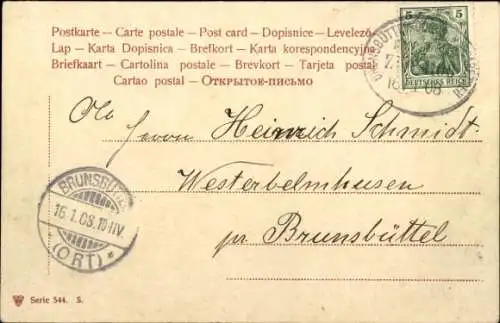 Postkarte — Carte postale — Post card — Dopisnice — Levelező
Lap — Karta Dopisnica — Brefkort — Karta korespondencyjna
Briefkaart — Cartolina postale — Brevkort — Tarjeta postal
Cartao postal — Открытое-письмо
5 5
DEUTSCHES REICH
Herrn Heinrich Schmidt
Westerbelmhusen
pr Brunsbüttel
BRUNSBÜ
16.1.08.10-11V.
(ORT) *
Serie 544. S.